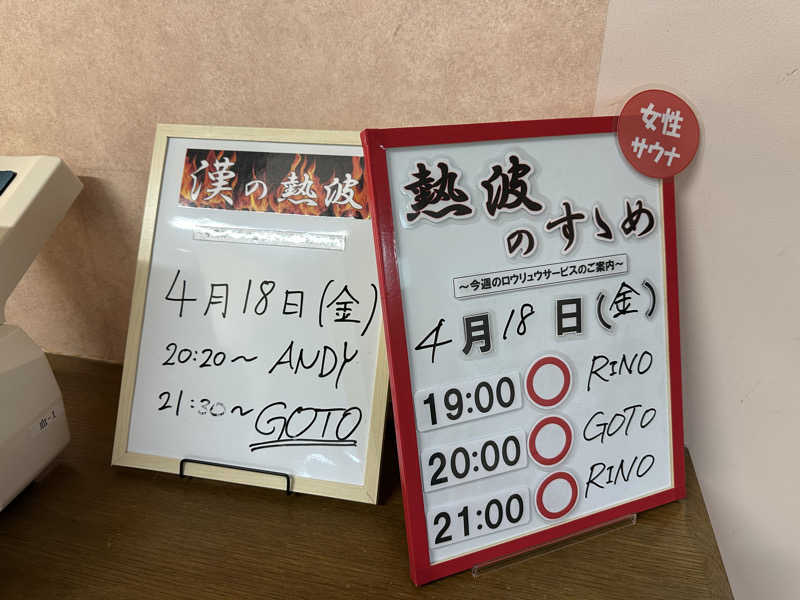 漢の熱波
4月18日(金)
20:20～ ANDY
21:30～ GOTO
女性
サウナ
熱波
のすゝめ
～今週のロウリュウサービスのご案内～
4月18日(金)
19:00 ○ RINO
20:00 ○ GOTO
21:00 ○ RINO